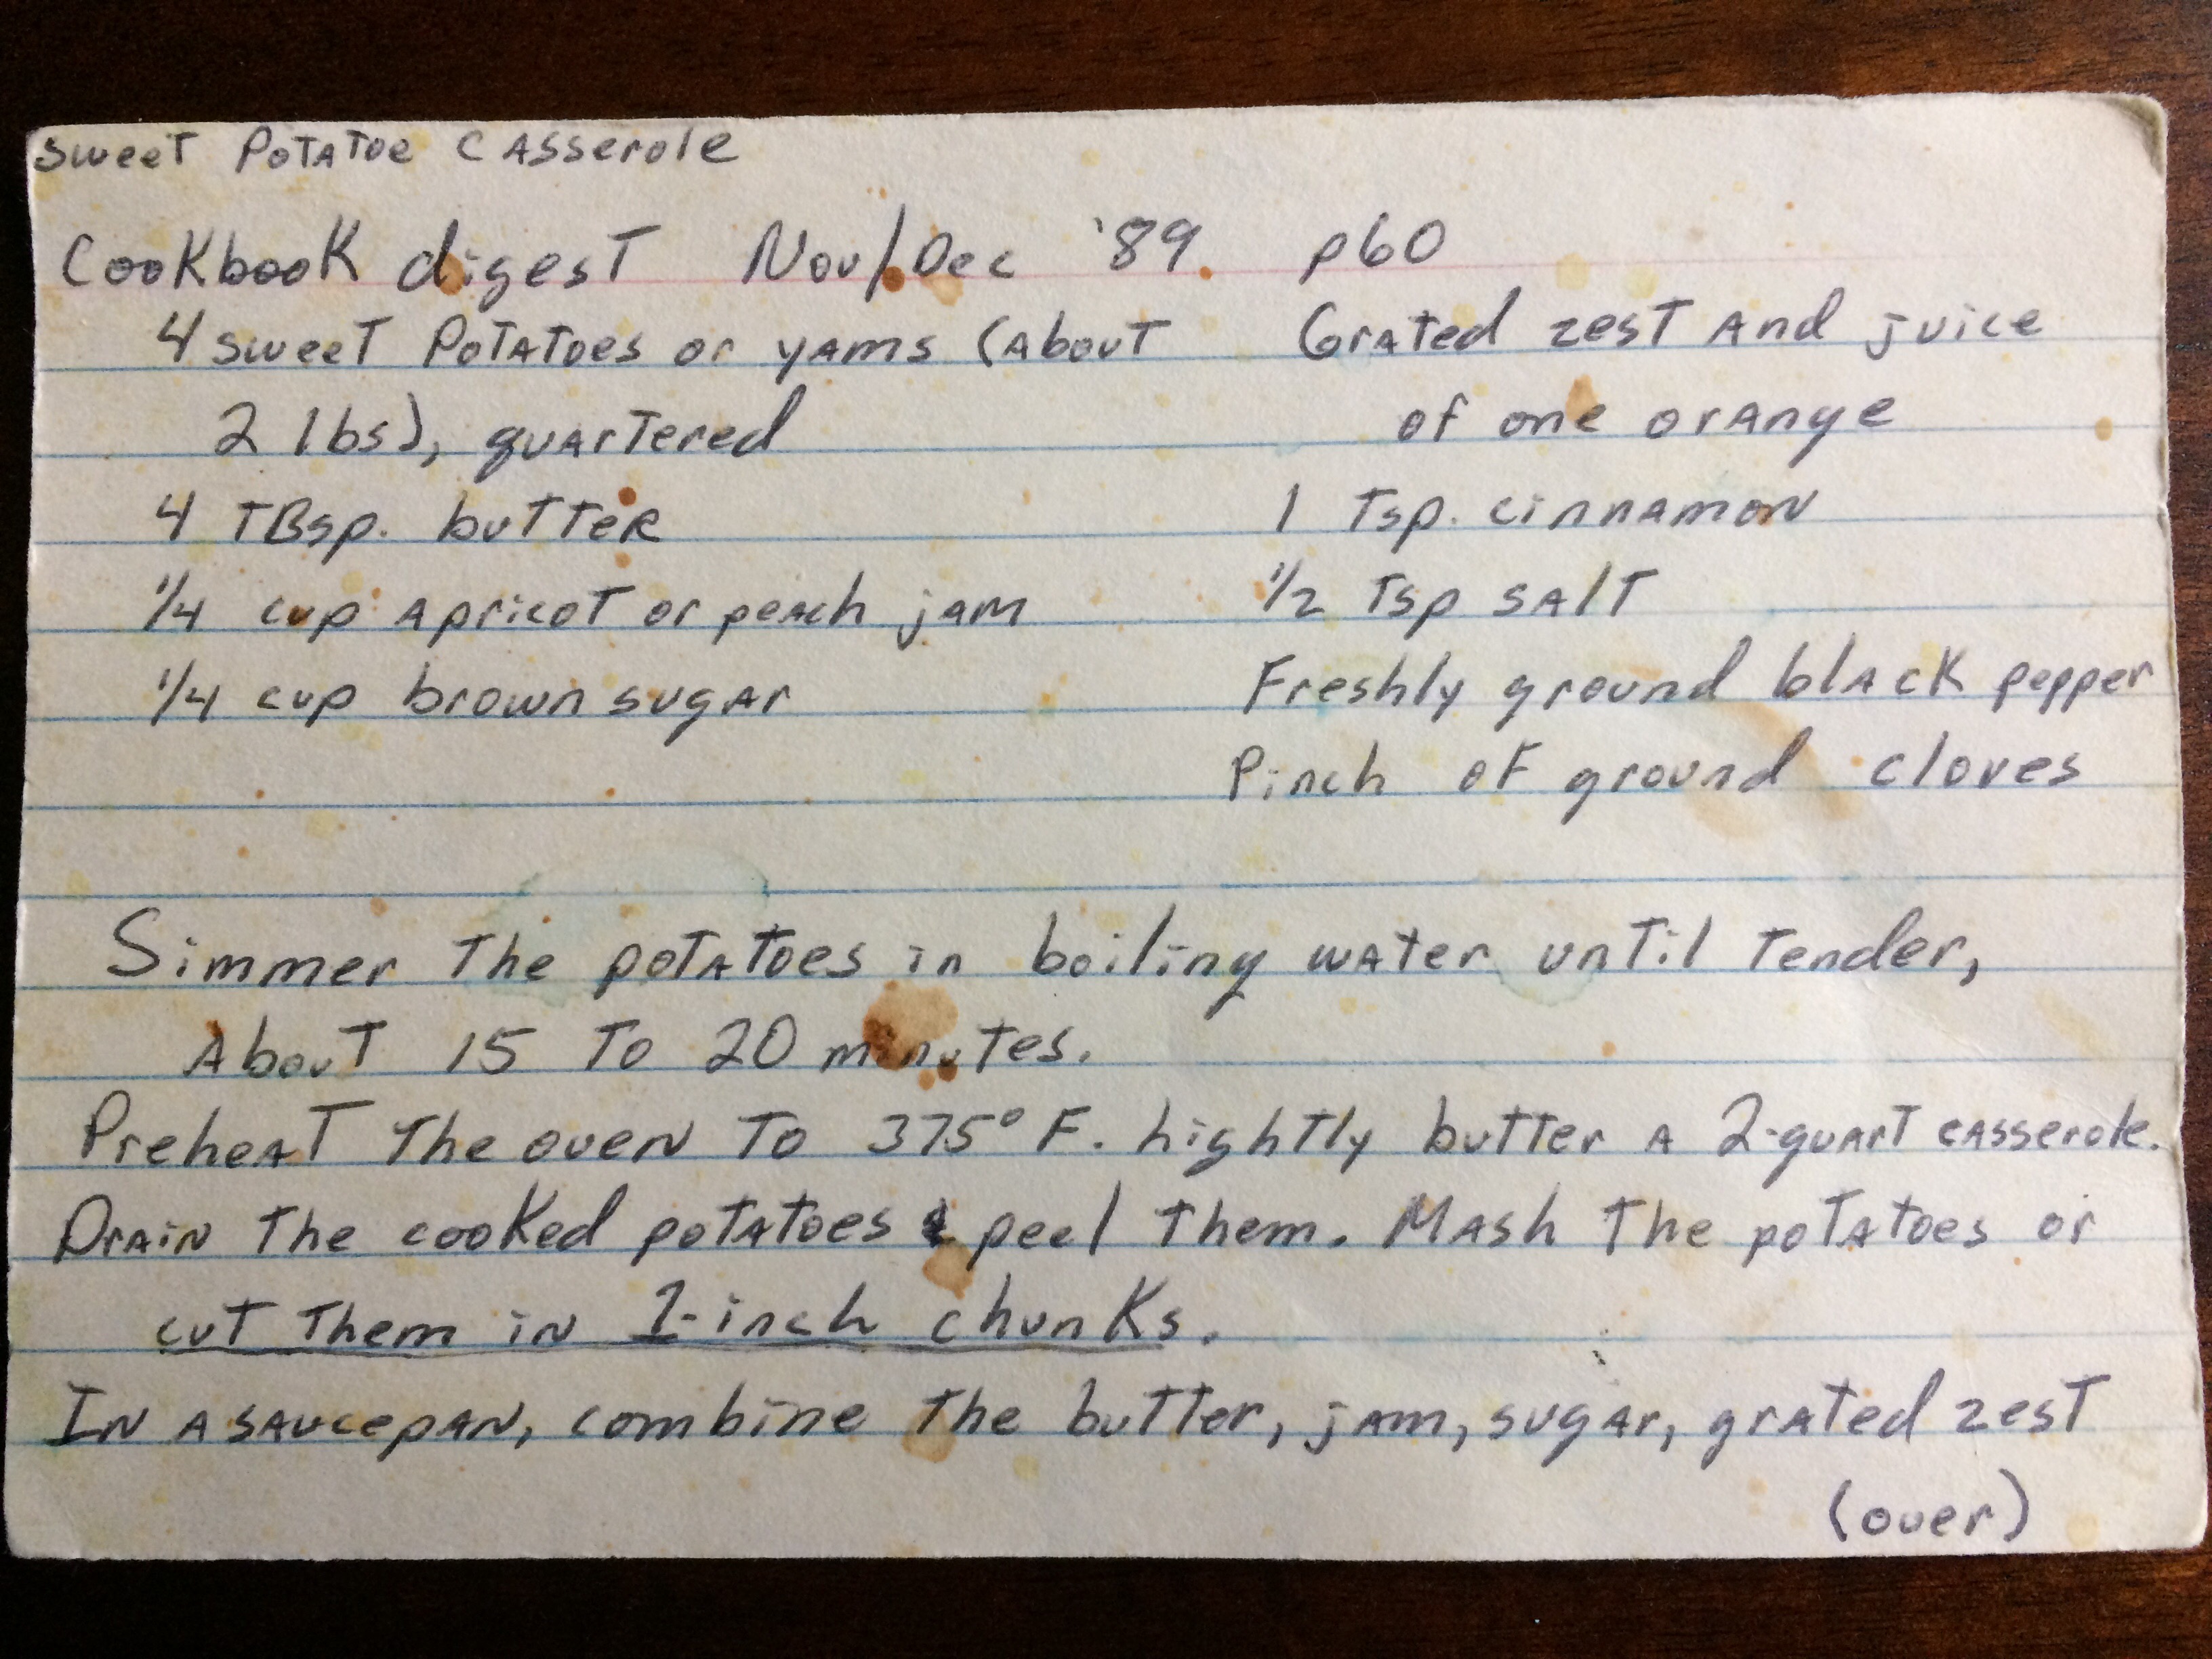 Sweet Potatoe Casserole
Cookbook digest Nov/Dec '89 p60
4 sweet potatoes or yams (about
2 lbs), quartered
4 TBsp. butter
1/4 cup apricot or peach jam
1/4 cup brown sugar
Grated zest and juice
of one orange
1 tsp. cinnamon
1/2 tsp salt
Freshly ground black pepper
Pinch of ground cloves
Simmer the potatoes in boiling water until tender,
About 15 to 20 minutes.
Preheat the oven to 375° F. lightly butter a 2-quart casserole.
Drain the cooked potatoes & peel them. Mash the potatoes or
cut them in 1-inch chunks.
In a saucepan, combine the butter, jam, sugar, grated zest
(over)